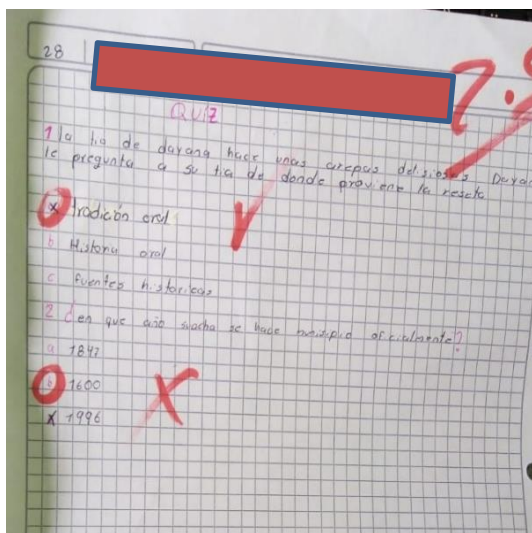 28
QUIZ
1 la tia de dayana hace unas arepas delisiosas Daya
le pregunta a su tia de donde proviene la reseta
x tradición oral
b Historia oral
c fuentes historicas
2 ¿en que año soacha se hace municipio oficialmente?
a 1847
b 1600
x 1996